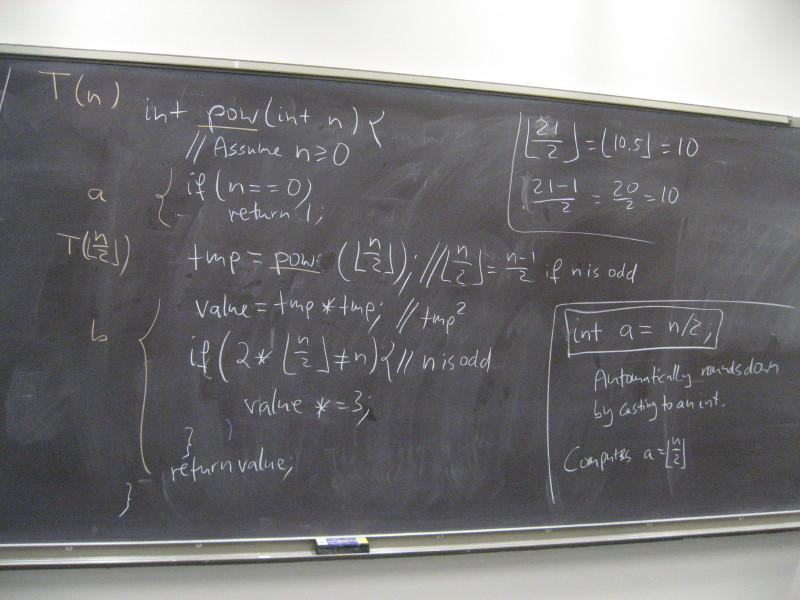 T(n)
int pow(int n) {
// Assume n ≥ 0
a
if (n == 0)
return 1;
T(⌊n/2⌋)
tmp = pow (⌊n/2⌋); // ⌊n/2⌋ = n-1/2 if n is odd
value = tmp * tmp; // tmp²
b
if (2 * ⌊n/2⌋ ≠ n) { // n is odd
value *= 3;
}
return value;
}
⌊21/2⌋ = ⌊10.5⌋ = 10
21-1/2 = 20/2 = 10
int a = n/2;
Automatically rounds down
by casting to an int.
Computes a = ⌊n/2⌋